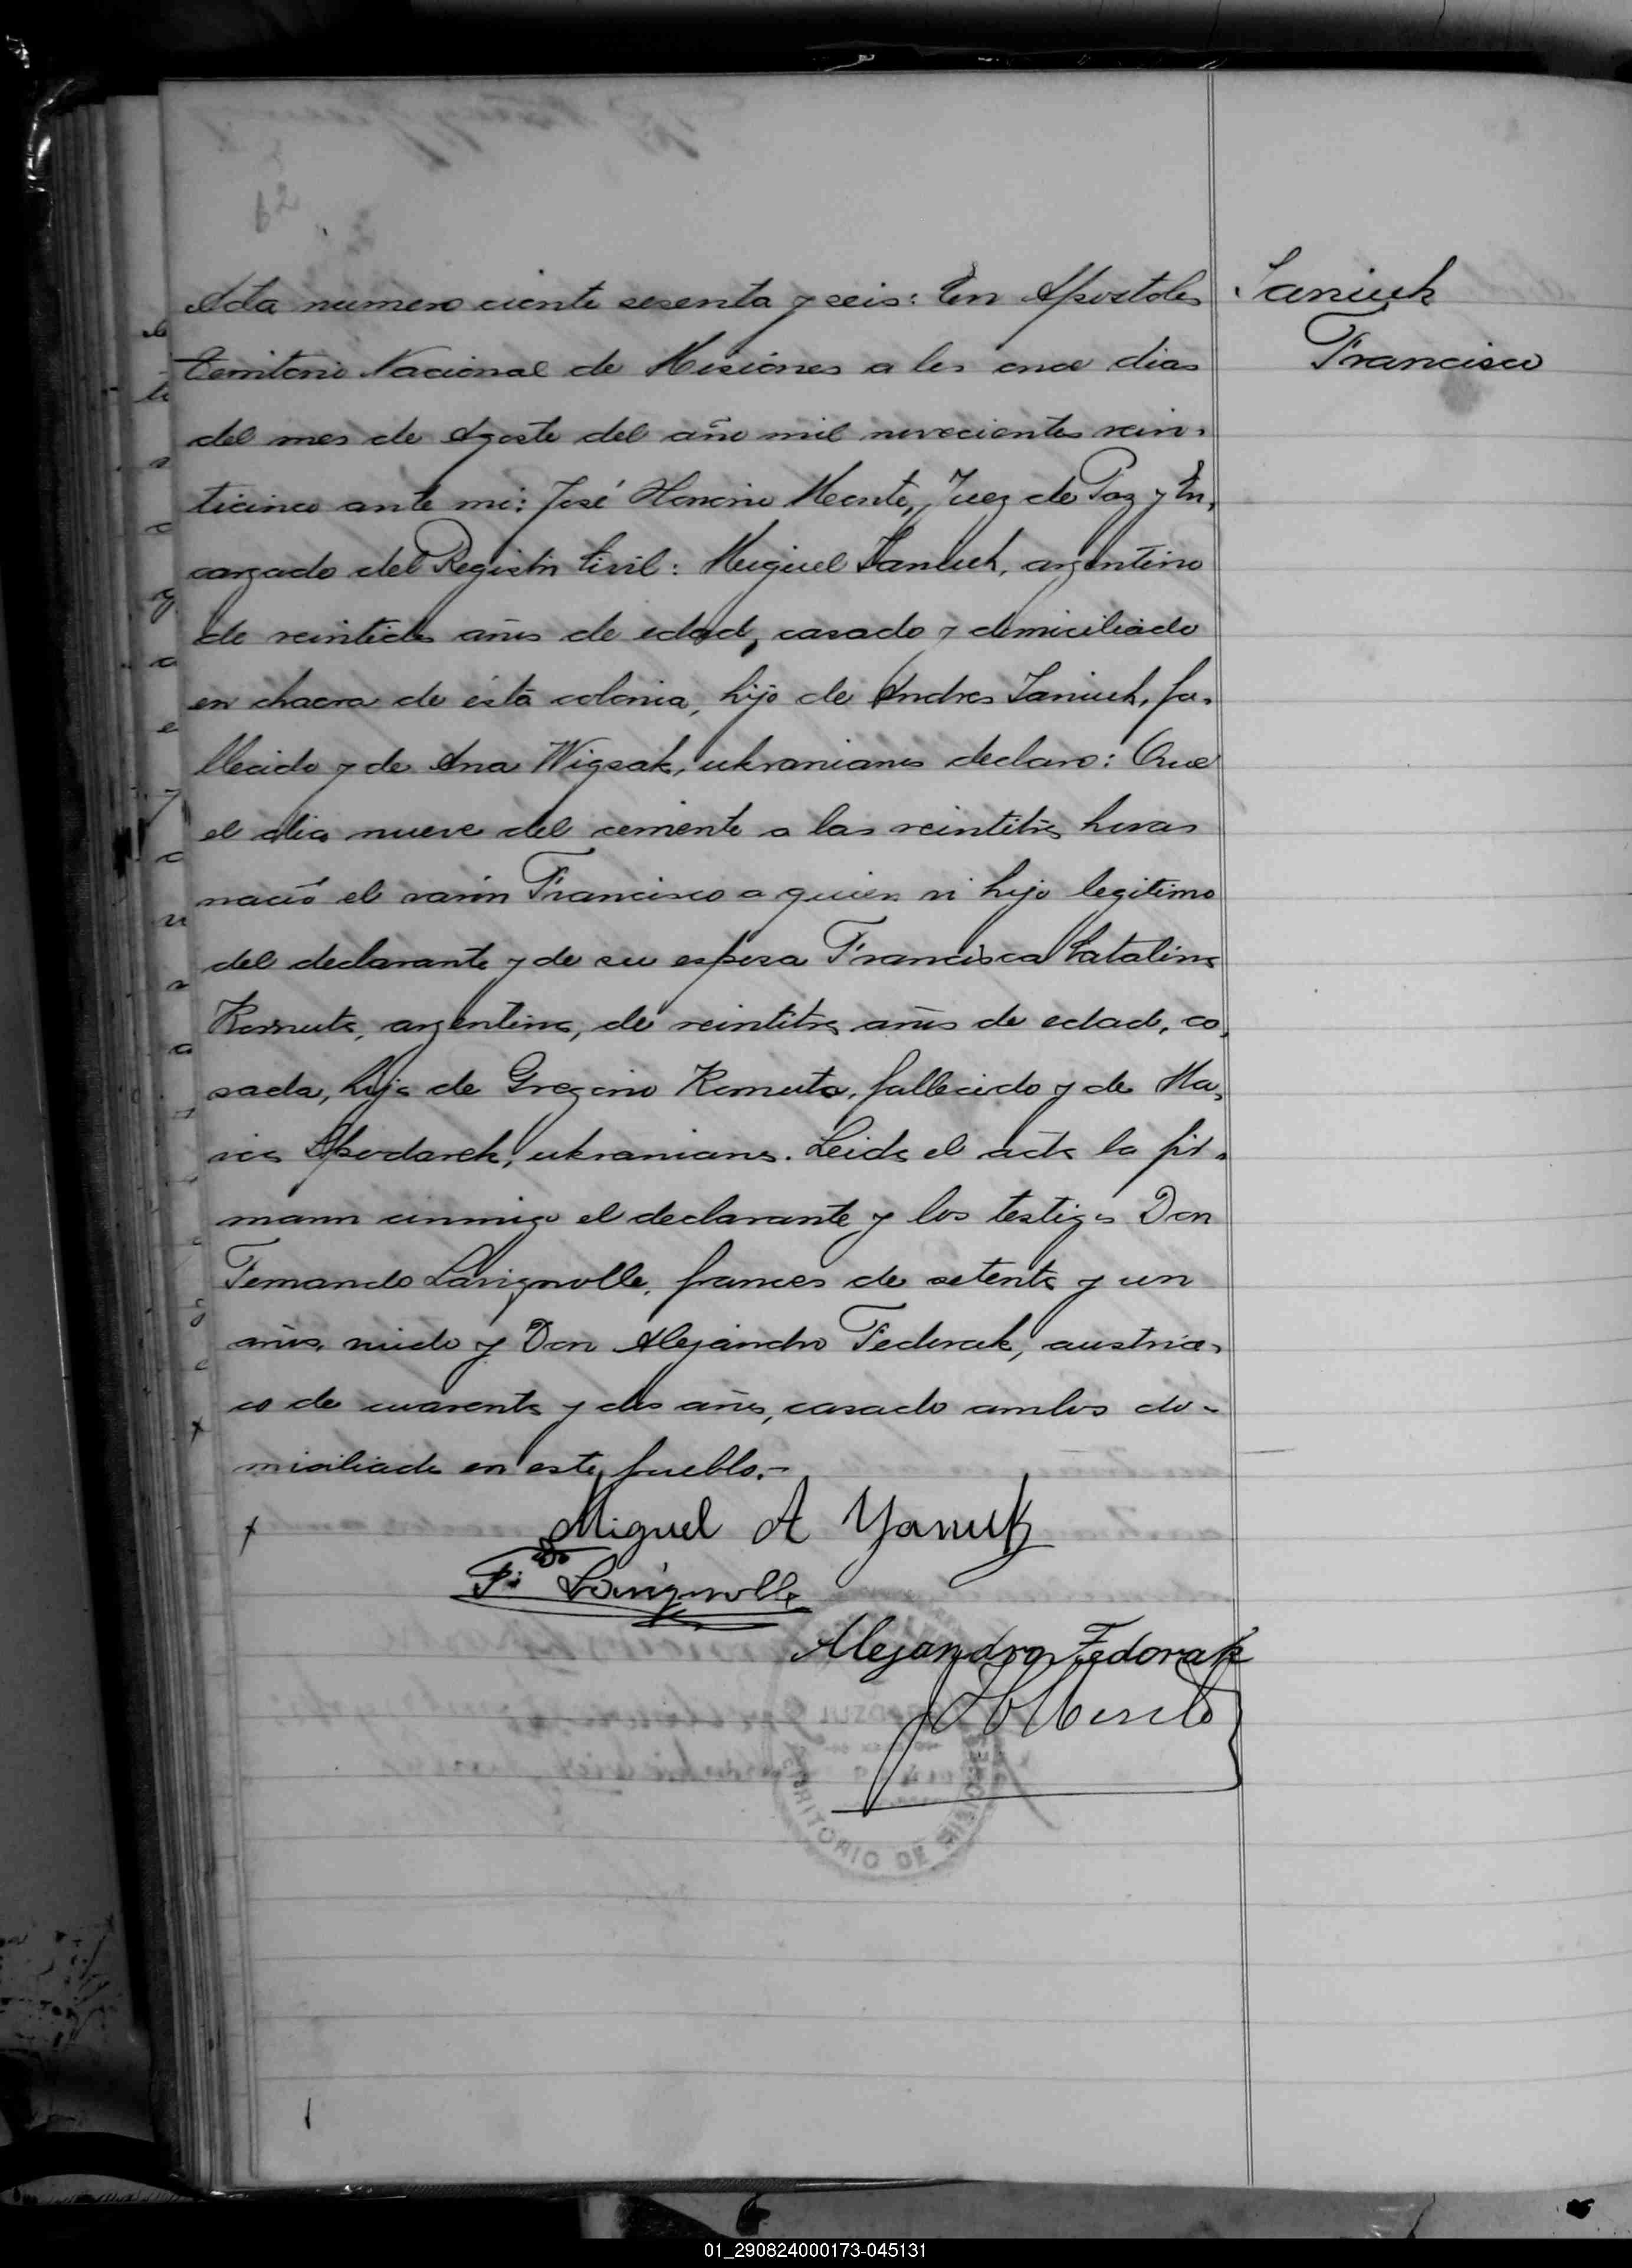 Ianiuk
Francisco
Acta numero ciento sesenta y seis: En Apostoles
territorio Nacional de Misiones a los once dias
del mes de Agosto del año mil novecientos vein-
ticinco ante mi: José Honorio Merete, Juez de Paz y En-
cargado del Registro Civil: Miguel Ianiuk, argentino
de veintidos años de edad, casado y domiciliado
en chacra de ésta colonia, hijo de Andres Ianiuk, fa-
llecido y de Ana Wigsak, ukranianos declaro: Que
el dia nueve del corriente a las veintitrés horas
nació el varón Francisco a quien vi hijo legitimo
del declarante y de su esposa Francisca Catalina
argentina, de veintitrés años de edad, ca-
sada, hija de Gregorio fallecido y de Ma-
ria ukranianos. Leida el acta la fir-
maron conmigo el declarante y los testigos Don
Fernando Lavignolle, frances de setenta y un
años, viudo y Don Alejandro Fedorak, austria-
co de cuarenta y dos años, casado ambos do-
miciliados en este pueblo.-
Miguel A Yanuk
F. Lavignolle
Alejandro Fedorak
TERRITORIO DE MISIONES
01_290824000173-045131